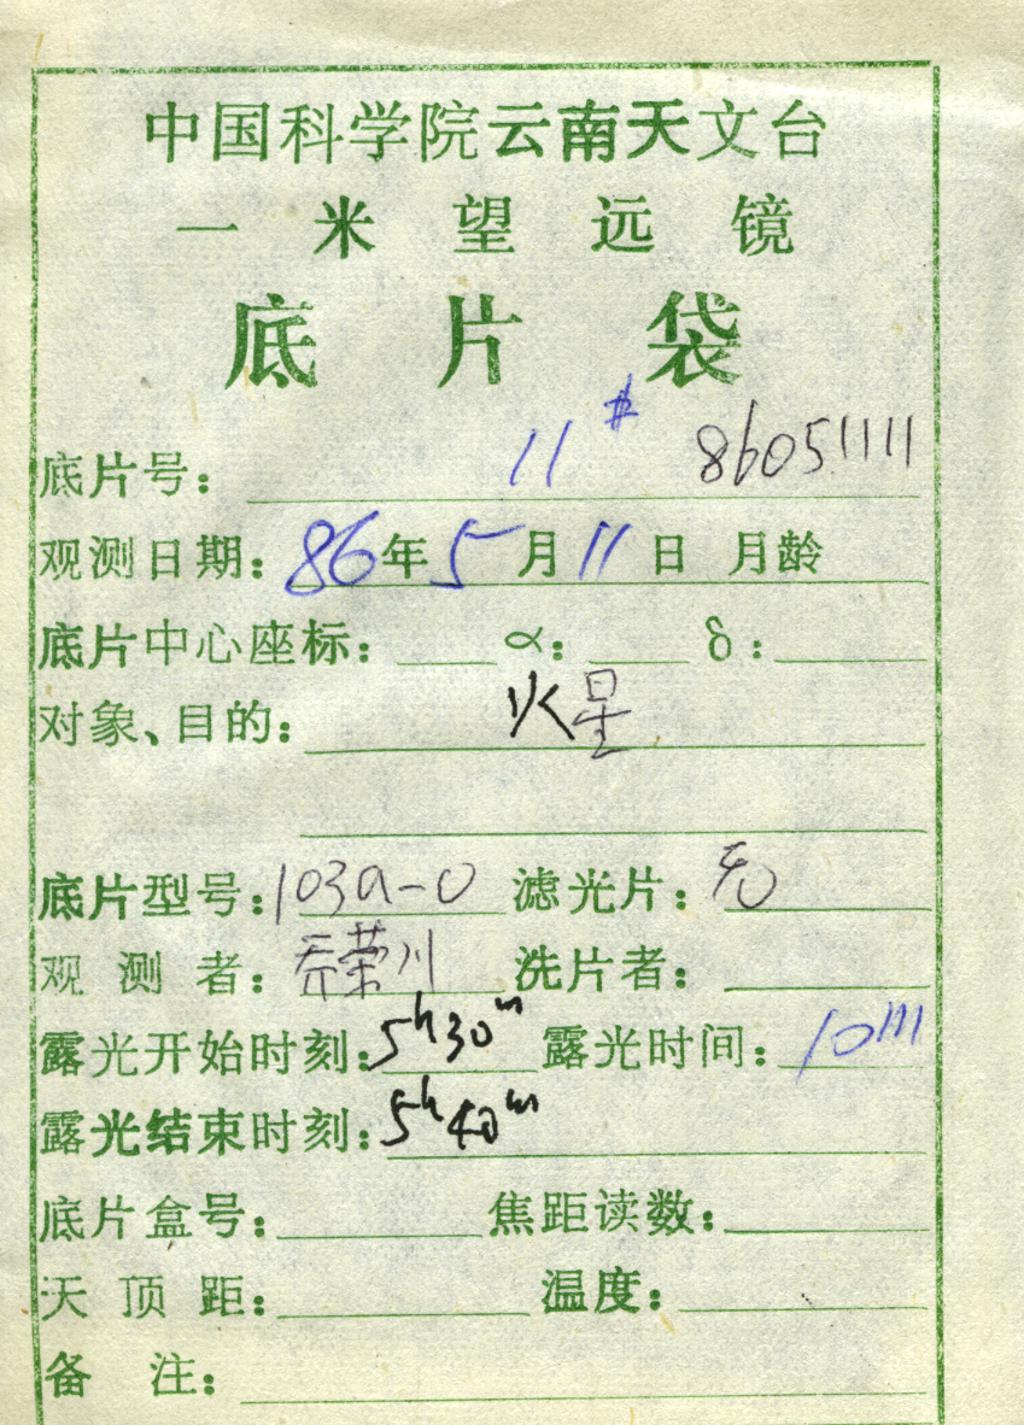 中国科学院云南天文台
一米望远镜
底片袋
底片号： 11# 86051111
观测日期：86年5月11日 月龄
底片中心座标： α： δ：
对象、目的： 火星
底片型号：103a-O 滤光片：无
观测者：乔荣川 洗片者：
露光开始时刻：5h30m 露光时间：10m
露光结束时刻：5h40m
底片盒号： 焦距读数：
天顶距： 温度：
备注：